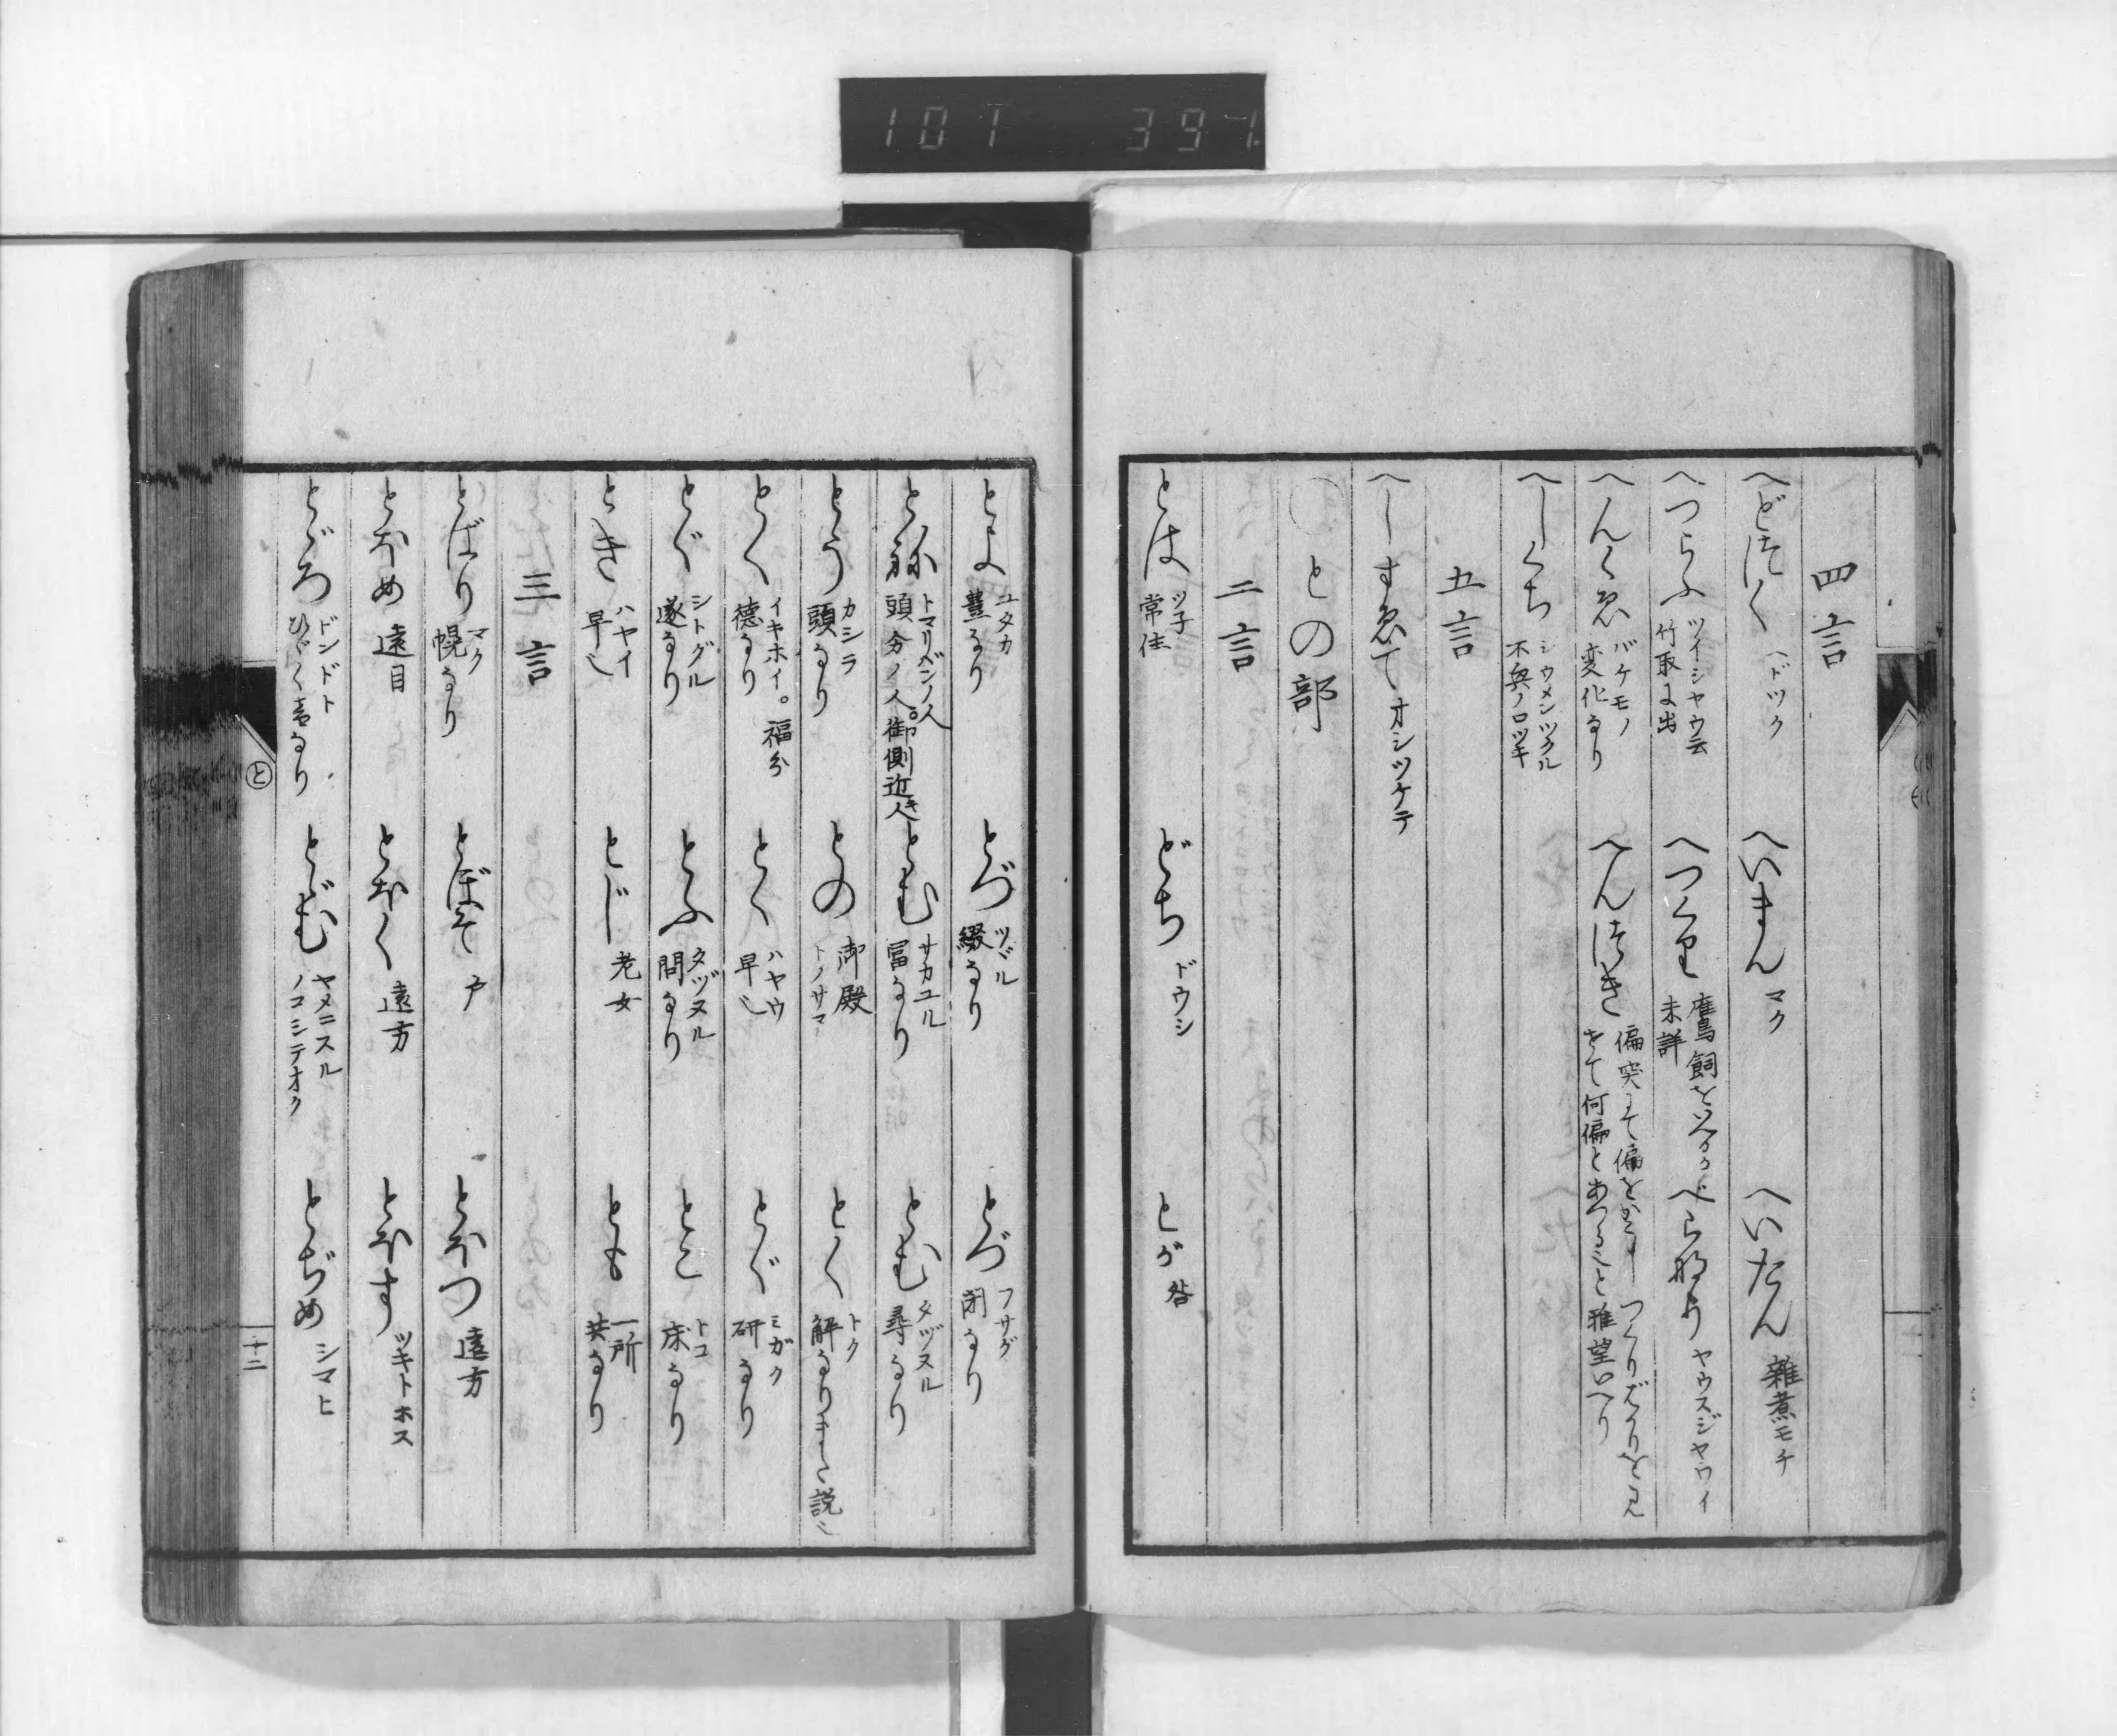 101 397
四言
へどつく ヘドツク
へいまん マク
へいたん 雑煮モチ
へつらふ ツイシャウ云 竹取に出
へつくり 鷹飼をいふか 未詳
べらなり ヤウスジヤウイ
へんくゑ バケモノ 変化なり
へんつき 偏突にて偏をかくし つくりばかりを見せて何偏とあつること 雅望いへり
へしくち ジウメンツクル 不興ノ口ツキ
五言
へしすゑて オシツケテ
○との部
二言
とは ツ子 常住
どち ドウシ
とが 咎
とよ ユタカ 豊なり
とづ ツヾル 綴なり
とづ フサグ 閉なり
とね トマリバンノ人 頭分ノ人。御側近き人
とむ サカユル 冨なり
とむ タヅヌル 尋るなり
とう カシラ 頭なり
との 御殿 トノサマ
とく トク 解なりまた説
とく イキホイ。福分 徳なり
とく ハヤウ 早し
とぐ ミガク 研なり
とぐ シトグル 遂なり
とふ タヅヌル 問なり
とこ トコ 床なり
とき ハヤイ 早し
とじ 老女
とも 一所 共なり
三言
とばり マク 幌なり
とぼそ 戸
とほつ 遠方
とほめ 遠目
とほく 遠方
とほす ツキトホス
とゞろ ドンドト ひゞく音なり
とゞむ ヤメニスル ノコシテオク
とぢめ シマヒ
と
十二